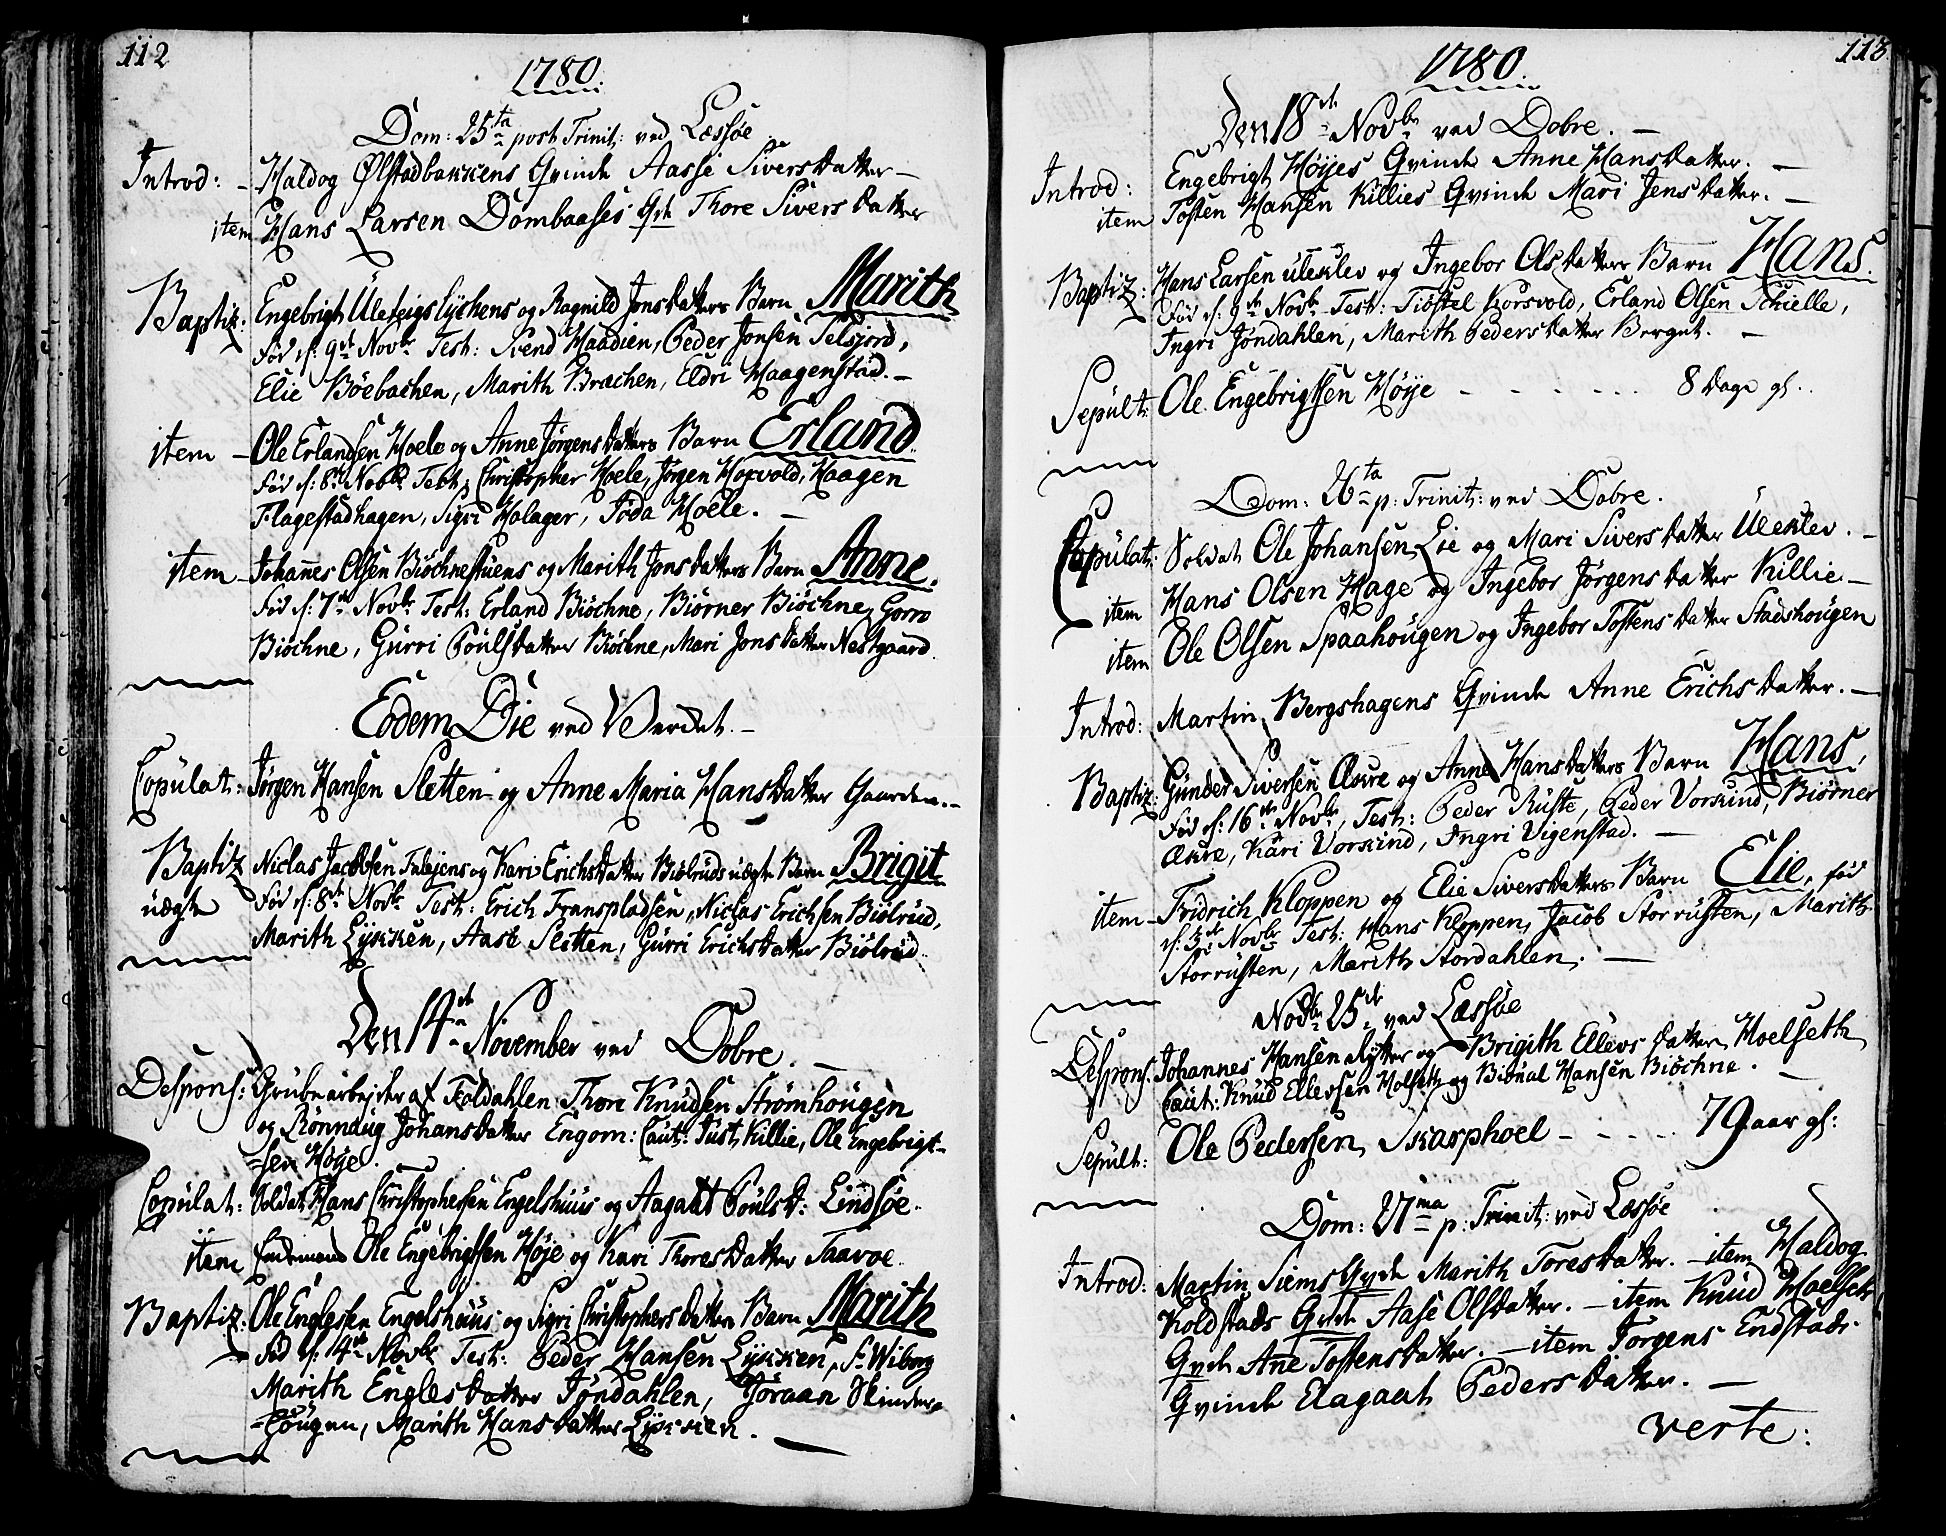 112
1780.
Dom: 25ta post Trinit: ved Læssøe
Introd: - Haldog Ølstadbakkens Qvinde Aasse Sivers Datter -
item Hans Larsen Dombaases Qvde Thore Sivers Datter
Baptiz: Engebrigt Uleteigs Lychens og Ragnild Jons Datters Barn Marith
Fød d: 9de Novbr Test: Svend Haadien, Peder Jonsen Selsjord,
Elie Böebachen, Marith Bræchen, Eldri Haagenstad. -
item - Ole Erlandsen Hoele og Anne Jørgens Datters Barn Erland
Fød d: 8de Novbr Test: Christopher Hoele, Jørgen Hoxvold, Haagen
Flagestadhagen, Sigri Holager, Joda Hoele. -
item - Johannes Olsen Biöchnestuens og Marith Jons Datters Barn Anne.
Fød d: 7de Novbr Test: Erland Biöchne, Biörner Biöchne, Gorro
Biöchne, Gurri Poulsdatter Biöchne, Mari Jons Datter Nestgaard.
Eodem Die ved Verket. -
Copulat: Jørgen Hansen Sletten - og Anne Maria Hans Datter Gaarden. -
Baptiz Niclas Jacobsen Falejens og Kari Erichs Datter Biölruds uægte Barn Brigit
uægte Fød d: 8de Novbr Test: Erich Fransplassen, Niclas Erichsen Biölrud,
Marith Lykken, Aase Sletten, Gurri Erichs Datter Biölrud.
Den 14de November ved Dobre. -
Despons: Grubearbejder af Foldahlen Thore Knudsen Strömhougen
og Rönnaug Johans Datter Engom: Caut: Just Killie, Ole Engebrigt-
=sen Höye.
Copulat: Soldat Hans Christophersen Engelshuus og Aagaat Pouls D: Lindsöe.
item Ole Engebrigtsen Höje og Kari Thores Datter Taaroe.
Baptiz: Ole Englesen Engelshuus og Sigri Christophers Datters Barn Marith
Fød d: 14de Novbr Test: Peder Hansen Lykken, Fr Wiborg
Marith Engles Datter Jøndahlen, Jöraan Skinder=
=hougen, Marith Hans Datter Lykken.
113
1780.
Den 18de Novbr ved Dobre. -
Introd: Engebrigt Höyes Qvinde Anne Hans Datter. -
item Tosten Hansen Killies Qvinde Mari Jens Datter. -
Baptiz: Hans Larsen Uleklev og Ingebor Ols Datters Barn Hans.
Fød d: 9de Novbr Test: Tiöstel Korsvold, Erland Olsen Schielle,
Ingri Jöndahlen, Marith Peders Datter Berget. -
Sepult: Ole Engebrigtsen Höye - - - - - 8 Dage gl.
Dom: 26ta p: Trinit: ved Dobre.
Copulat: Soldat Ole Johansen Lie og Mari Sivers Datter Uleklev. -
item Hans Olsen Hage og Ingebor Jørgens Datter Killie -
item Ole Olsen Spaahougen og Ingebor Tostens Datter Stadshougen
Introd: Martin Bergshagens Qvinde Anne Erichs Datter. -
Baptiz: Gunder Siversen Ækre og Anne Hans Datters Barn Hans.
Fød d: 16de Novbr, Test: Peder Ruste, Peder Vorkind, Biörner
Ækre, Kari Vorkind, Ingri Vigenstad. -
item - Fridrich Kloppen og Elie Sivers Datters Barn Elie, fød
d: 3de Novbr Test: Hans Kloppen, Jacob Storrusten, Marith
Storrusten, Marith Stordahlen. -
Novbr 25de ved Læssöe
Despons. Johannes Hansen Rytter og Brigith Ellevs Datter Hoelseth
Caut: Knud Ellevsen Holseth og Biönal Hansen Biöchne. -
Sepult: Ole Pedersen Skarphoel - - - - - 79 aar gl:
Dom: 27ma p: Trinit: ved Læssöe
Introd: Martin Siems Qvde Marith Tores Datter. - item Haldog
Koldstads Qvde Aase Olsdatter. - item Knud Hoelseth
Qvde Ane Tostens Datter. - item Jørgens Endstads
Qvinde Elagaat Peders Datter. -
verte: